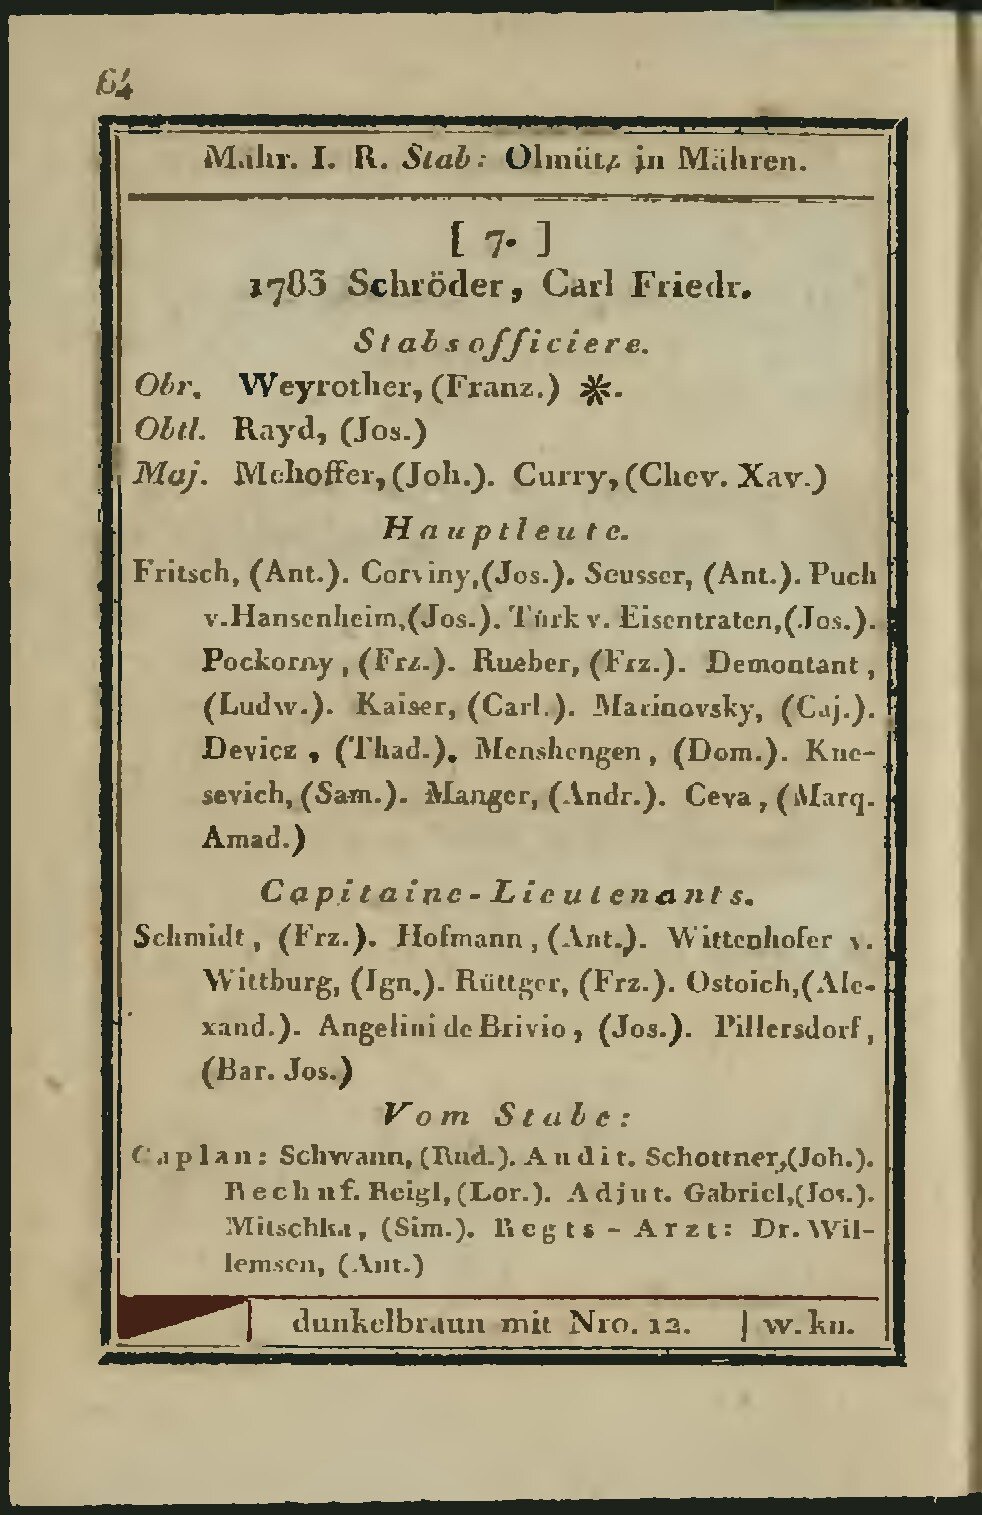 64
Mähr. I. R. Stab: Olmütz in Mähren.
[ 7. ]
1783 Schröder, Carl Friedr.
Stabsofficiere.
Obr. Weyrother, (Franz.) ✻.
Obtl. Rayd, (Jos.)
Maj. Mehoffer, (Joh.). Curry, (Chev. Xav.)
Hauptleute.
Fritsch, (Ant.). Corviny, (Jos.). Seusser, (Ant.). Puch
v. Hansenheim, (Jos.). Türk v. Eisentraten, (Jos.).
Pockorny, (Frz.). Rueber, (Frz.). Demontant,
(Ludw.). Kaiser, (Carl.). Marinovsky, (Caj.).
Devicz, (Thad.). Menshengen, (Dom.). Kne-
sevich, (Sam.). Manger, (Andr.). Ceva, (Marq.
Amad.)
Capitaine-Lieutenants.
Schmidt, (Frz.). Hofmann, (Ant.). Wittenhofer v.
Wittburg, (Ign.). Rüttger, (Frz.). Ostoich, (Ale-
xand.). Angelini de Brivio, (Jos.). Pillersdorf,
(Bar. Jos.)
Vom Stabe:
Caplan: Schwann, (Rud.). Audit. Schottner, (Joh.).
Rechnf. Reigl, (Lor.). Adjut. Gabriel, (Jos.).
Mitschka, (Sim.). Regts-Arzt: Dr. Wil-
lemsen, (Ant.)
dunkelbraun mit Nro. 12. | w. kn.